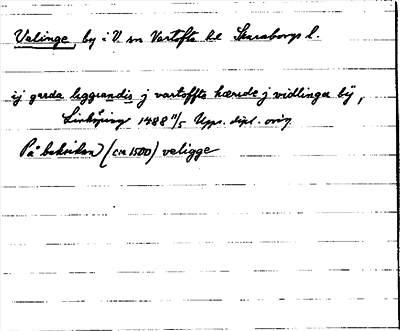 Valinge by i V. sn Vartofta hd Skaraborgs l.
ij garda liggiandis j vartoffta hærede j vidlinga bÿ,
Linköping 1488 11/5 Upps. dipl. orig.
På baksidan (ca 1500) veligge